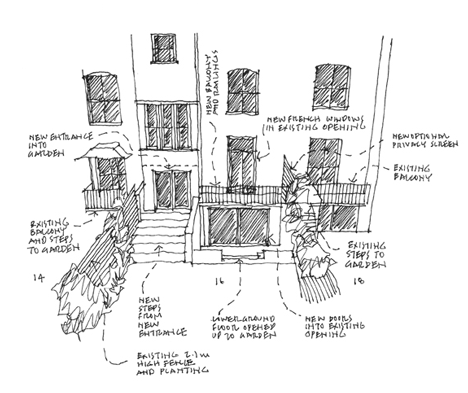 NEW BALCONY
AND RAILINGS
NEW FRENCH WINDOWS
IN EXISTING OPENING
NEW ENTRANCE
INTO
GARDEN
NEW OPTIONAL
PRIVACY SCREEN
EXISTING
BALCONY
EXISTING
BALCONY
AND STEPS
TO GARDEN
EXISTING
STEPS TO
GARDEN
14
16
18
NEW
STEPS
FROM
NEW
ENTRANCE
LOWER GROUND
FLOOR OPENED
UP TO GARDEN
NEW DOORS
INTO EXISTING
OPENING
EXISTING 2.1m
HIGH FENCE
AND PLANTING